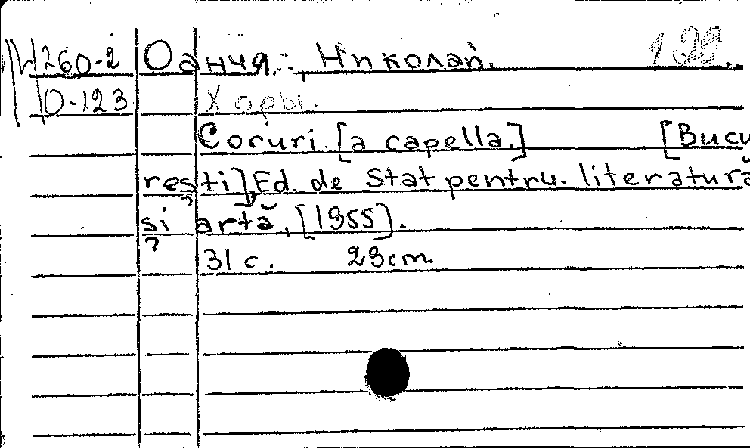 М260-2 Оанчя, Николай.
О-123 Хоры.
Coruri. [a capella.] [Bucu
rești], Ed. de Stat pentru literatură
și artă, [1955].
31 c. 29 cm.